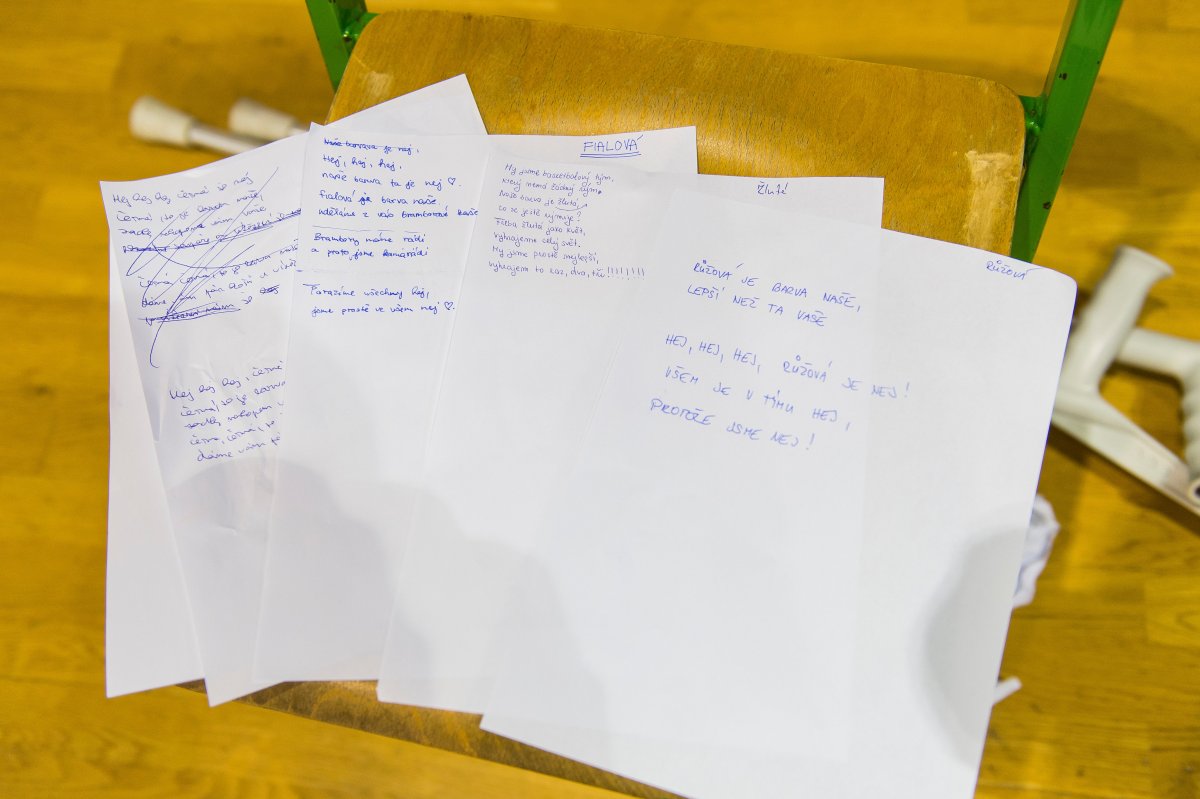 Hej hej hej, černá je nej
černá to je barva naší,
černá
Hej hej hej, černá
černá to je barva
černá, černá, to
dáme vám
Naše barava je nej,
Hej, hej, hej,
naše barva ta je nej ♡.
Fialová je barva naše,
uděláme z vás bramborové kaše
Brambory máme rádi
a proto jsme kamarádi
Porazíme všechny hej,
jsme prostě ve všem nej ♡.
FIALOVÁ
My jsme basketbalový tým,
který nemá žádný rým.
Naše barva je žlutá,
co se ještě rýmuje?
Třeba žlutá jako květ,
vyhrajeme celý svět.
My jsme prostě nejlepší,
vyhrajem to raz, dva, tři!!!!!!!!
Žlutá
RŮŽOVÁ
RŮŽOVÁ JE BARVA NAŠE,
LEPŠÍ NEŽ TA VAŠE
HEJ, HEJ, HEJ, RŮŽOVÁ JE NEJ!
VŠEM JE V TÝMU HEJ,
PROTOŽE JSME NEJ!